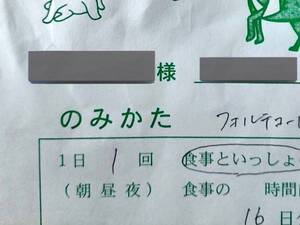 様
のみかた フォルテコー
1日 1 回 食事といっしょ
(朝昼夜) 食事の 時間
16日